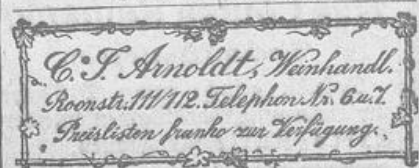 C. J. Arnoldt, Weinhandl.
Roonstr. 111/112. Telephon Nr. 6 u. 7.
Preislisten franko zur Verfügung.